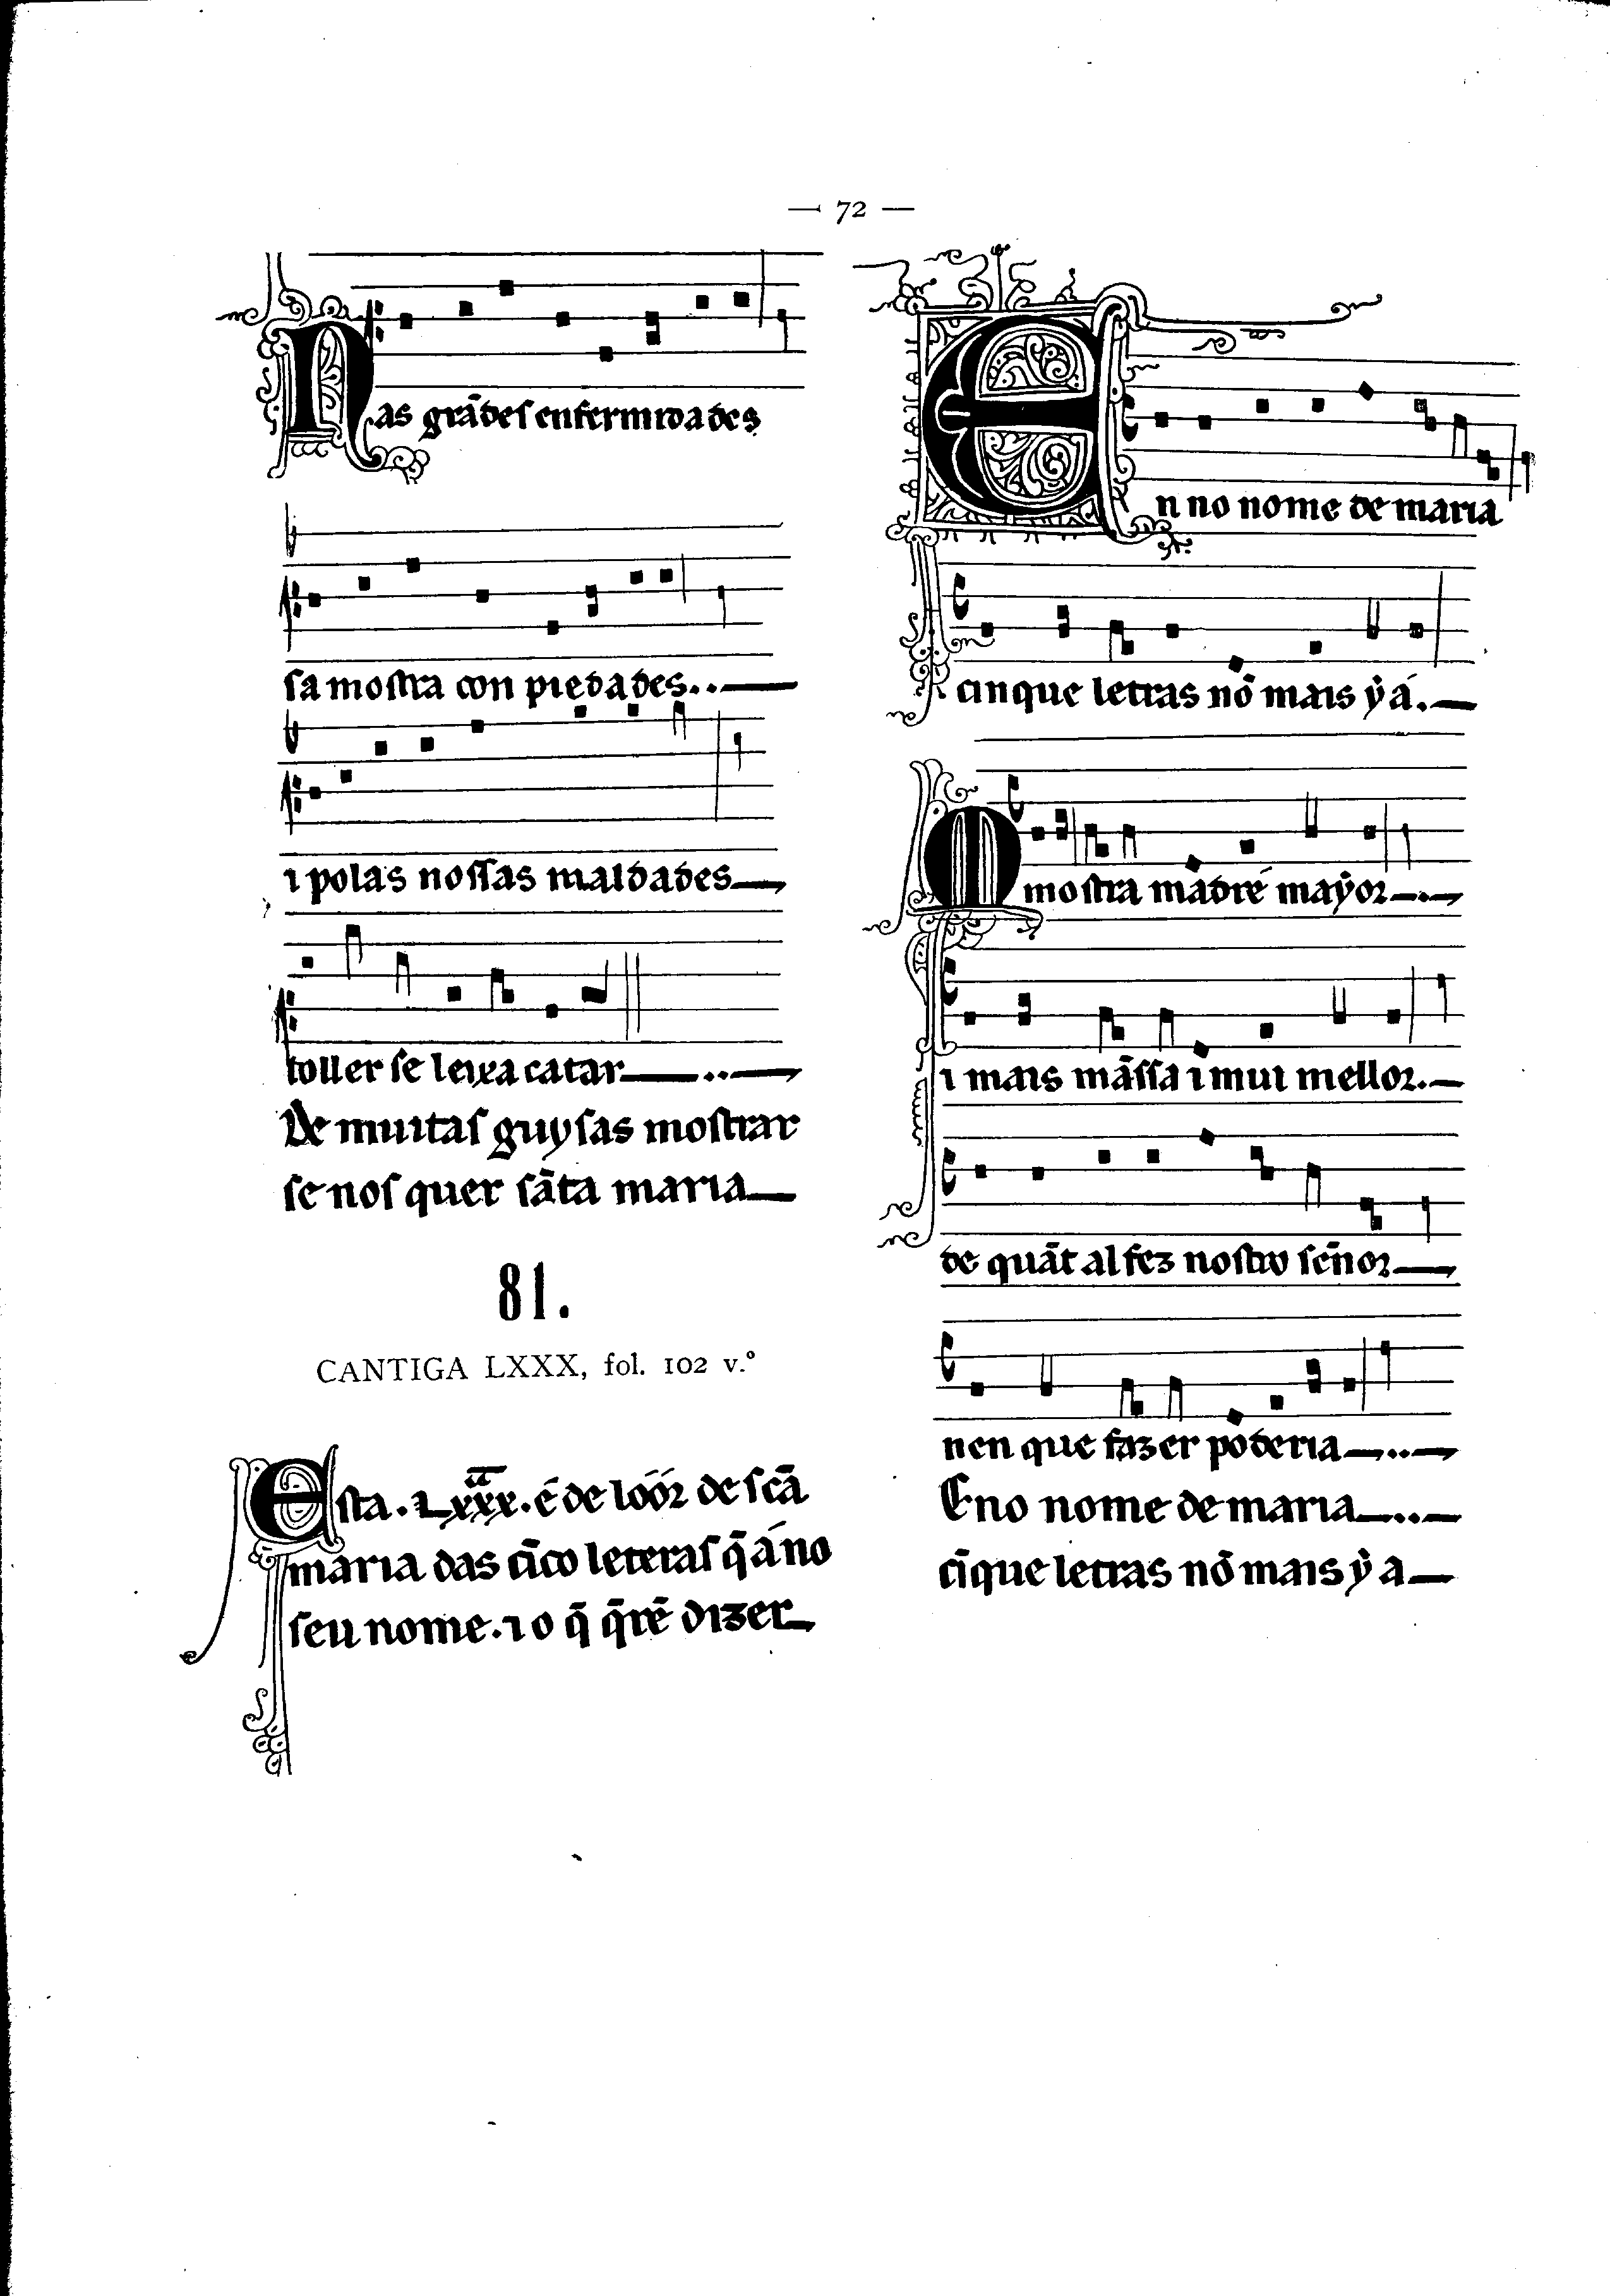 — 72 —
Nas grãdeſ enfermidades
ſa moſtra con piedades..
⁊ polas noſſas maldades
toller ſe leixa catar
De muitaſ guyſas moſtrar
ſe noſ quer ſãta maria
81.
CANTIGA LXXX, fol. 102 v.º
Eſta . Lxxx. é de lóór de ſcã
maria das cĩco leteraſ q̃ á no
ſeu nome. ⁊ o q̃ q̃rẽ dizer
En no nome de maria
cinque letras nõ mais ẏ á.
M moſtra madre maẏor
⁊ mais mãſſa ⁊ mui mellor.
de quãt al fez noſtro ſẽnor
nen que fazer poderia
Eno nome de maria
cĩque letras nõ mais ẏ a